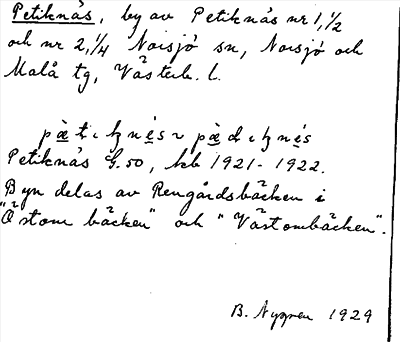 Petiknäs, by av Petiknäs nr 1, 1/2
och nr 2, 1/4 Norsjö sn, Norsjö och
Malå tg, Västerb. l.
Petiknäs G.50, kb 1921-1922.
Byn delas av Rengårdsbäcken i
"Östom bäcken" och "Västombäcken".
B. Nygren 1929